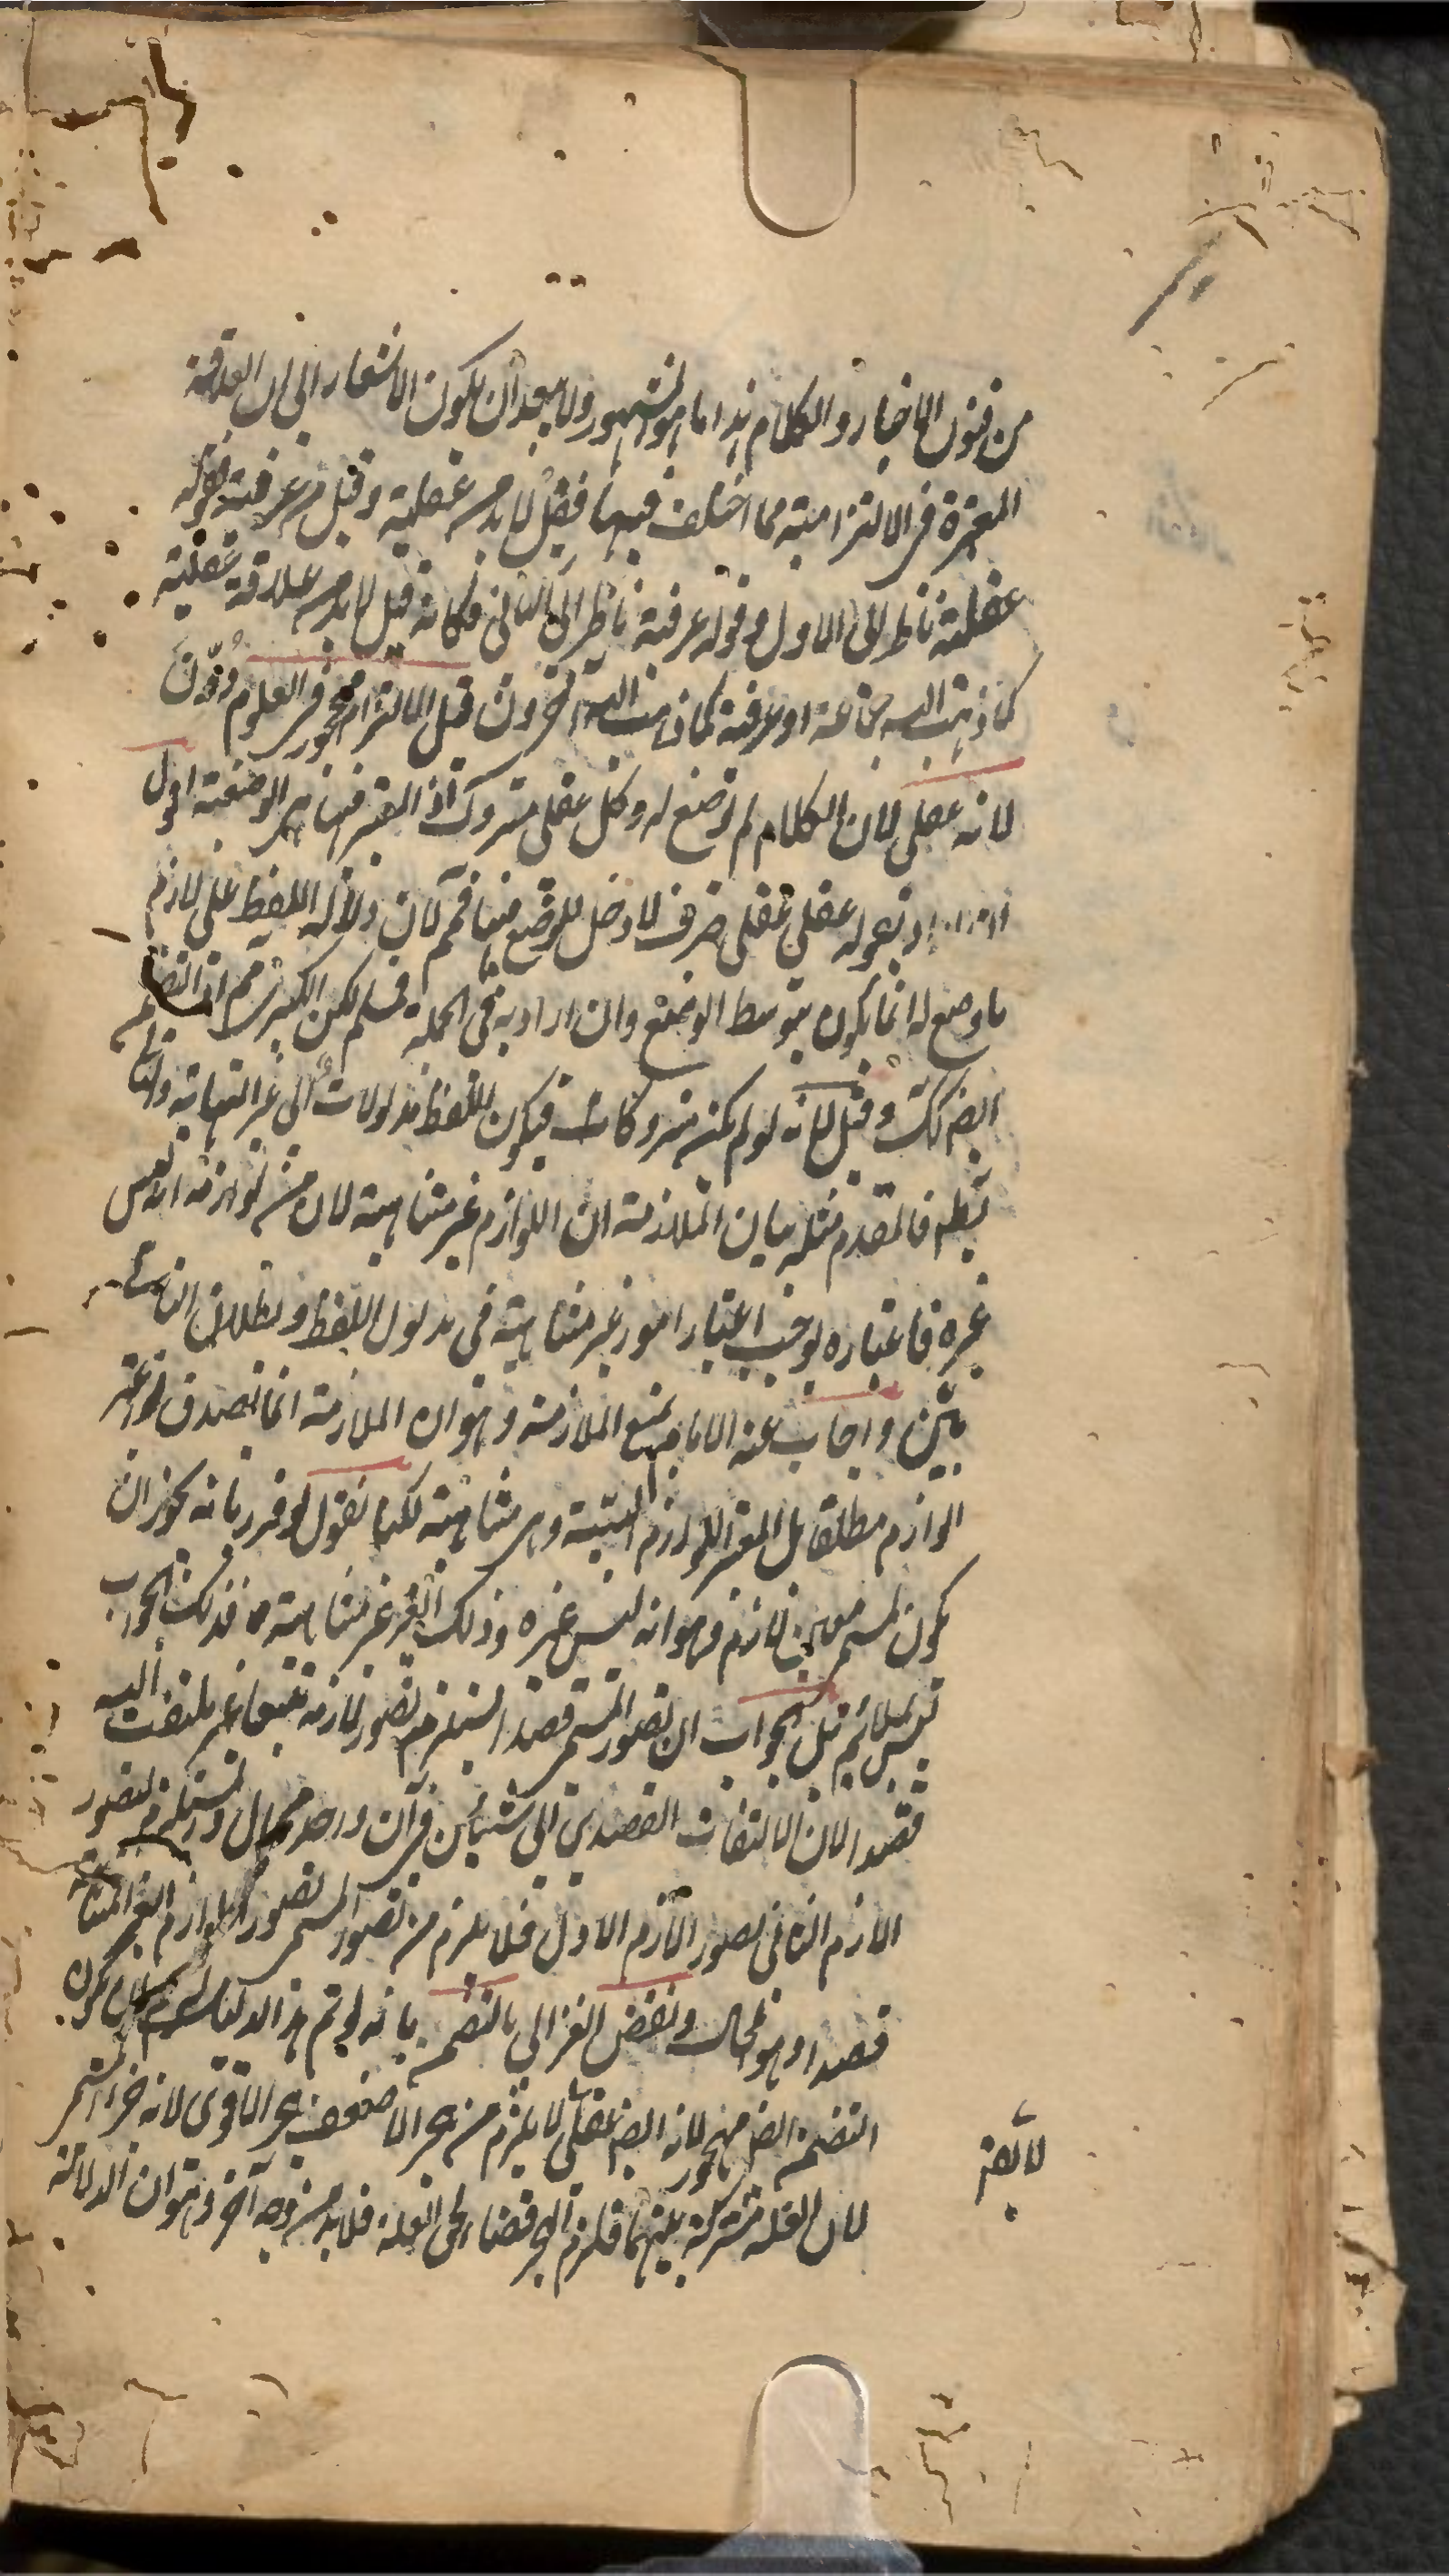 من فنون الاخبار والكلام هذا ما هو المشهور ولا يبعد ان يكون الاشعار الى ان العلاقة
المعتبرة فى الالتزامية مما اختلف فيها فقيل لا بد من عقلية وقيل من عرفية فقوله
عقلية ناظر الى الاول وقوله عرفية ناظر الى الثانى فكانه قيل لا بد من علاقة عقلية
كما ذهبت اليه جماعة او عرفية كما ذهبت اليه آخرون قيل الالتزام مهجور فى العلوم
لانه عقلى لان الكلام لم يوضع له وكل عقلى متروك اذ المعتبر فيها هى الوضعية اقول
ان اراد بقوله عقلى عقلى صرف لا دخل للوضع فيها فمم لان دلالة اللفظ على لازم
ما وضع له انما يكون بتوسط الوضع وان اراد به فى الجملة فسلم لكن الكبرى مم اذ التضمن
ايض كك وقيل لانه لو لم يكن متروكا فيكون للفظ مدلولات الى غير النهاية والتالى
بطم فالمقدم مثله بيان الملازمة ان اللوازم غير متناهية لان من لوازمه انه ليس
غيره فاعتباره يوجب اعتبار امور غير متناهية فى مدلول اللفظ وبطلان التالى
بيّن واجاب عنه الامام بمنع الملازمة وهو ان الملازمة انما تصدق لو اعتبر
الوازم مطلقا بل المعتبر اللوازم البيّنة وهى متناهية لكنا نقول لو قرر بانه يجوز ان
يكون لمسمى معين لازم وهو انه ليس غيره وذلك الغير غير متناهية فذلك الجواب
ليس بملائم بل الجواب ان تصور المسمى قصدا يستلزم تصور لازمه تبعا غير ملتفت اليه
قصدا لان الالتفات القصدى الى شيئين فى آن واحد محال ويستلزم تصور
الازم الثانى تصور الازم الاول فلا يلزم من تصور المسمى تصور اللوازم الغير المتناهية
قصدا وهو المحال ونقض الغزالى بالتضمن بانه لو تم هذا الدليل ان يكون
التضمن ايض مهجور لانه ايض عقلى لا يلزم من هجر الاضعف هجر الاقوى لانه جزء المسمى
لان العلة مشتركة بينهما فلزم الهجر قضاء لحق العلة فلا بد من وجه آخر وهو ان الدلالة